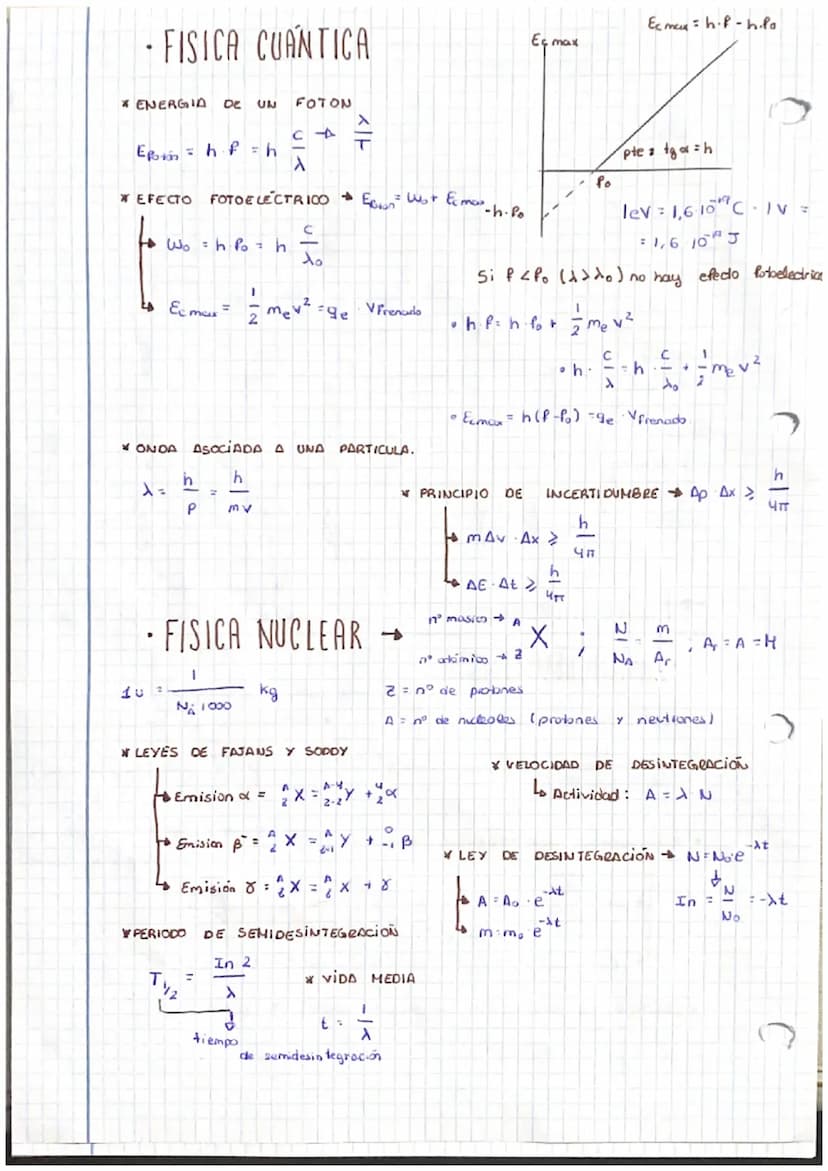 · FISICA CUÁNTICA
Ec max
Ec max = h·f - h·f₀
* ENERGIA DE UN FOTON
Efotón = h·f = h c/λ → λ/T
pte = tg α = h
f₀
-h·f₀
* EFECTO FOTOELÉCTRICO → Efoton = W₀ + Ec max
W₀ = h·f₀ = h c/λ₀
Ec max = 1/2 me v² = qe · Vfrenado
1eV = 1,6·10⁻¹⁹ C · 1V =
= 1,6 10⁻¹⁹ J
Si f < f₀ (λ > λ₀) no hay efecto fotoelectrico
• h·f = h·f₀ + 1/2 me v²
• h · c/λ = h · c/λ₀ + 1/2 me v²
• Ecmax = h(f-f₀) = qe · Vfrenado
* ONDA ASOCIADA A UNA PARTICULA.
λ = h/p = h/mv
* PRINCIPIO DE INCERTIDUMBRE → Δp · Δx ≥ h/4π
mΔv · Δx ≥ h/4π
ΔE · Δt ≥ h/4π
· FISICA NUCLEAR →
nº masico → A
X ; N/NA = m/Ar ; Ar = A = M
nº atómico → Z
1u = 1/NA·1000 kg
Z = nº de protones
A = nº de nucleoles (protones y neutrones)
* LEYES DE FAJANS Y SODDY
Emision α = ᴬ_Z X = ᴬ⁻⁴_Z-2 Y + ⁴_2 α
Emision β⁻ = ᴬ_Z X = ᴬ_Z+1 Y + ⁰_-1 β
Emisión γ : ᴬ_Z X = ᴬ_Z X + γ
* VELOCIDAD DE DESINTEGRACIÓN
Actividad : A = λ·N
* LEY DE DESINTEGRACIÓN → N = N₀·e^-λt
A = A₀ · e^-λt
m = m₀ e^-λt
In = N/N₀ = -λt
* PERIODO DE SEMIDESINTEGRACIÓN
T1/2 = In 2/λ
tiempo
de semidesintegración
* VIDA MEDIA
t = 1/λ